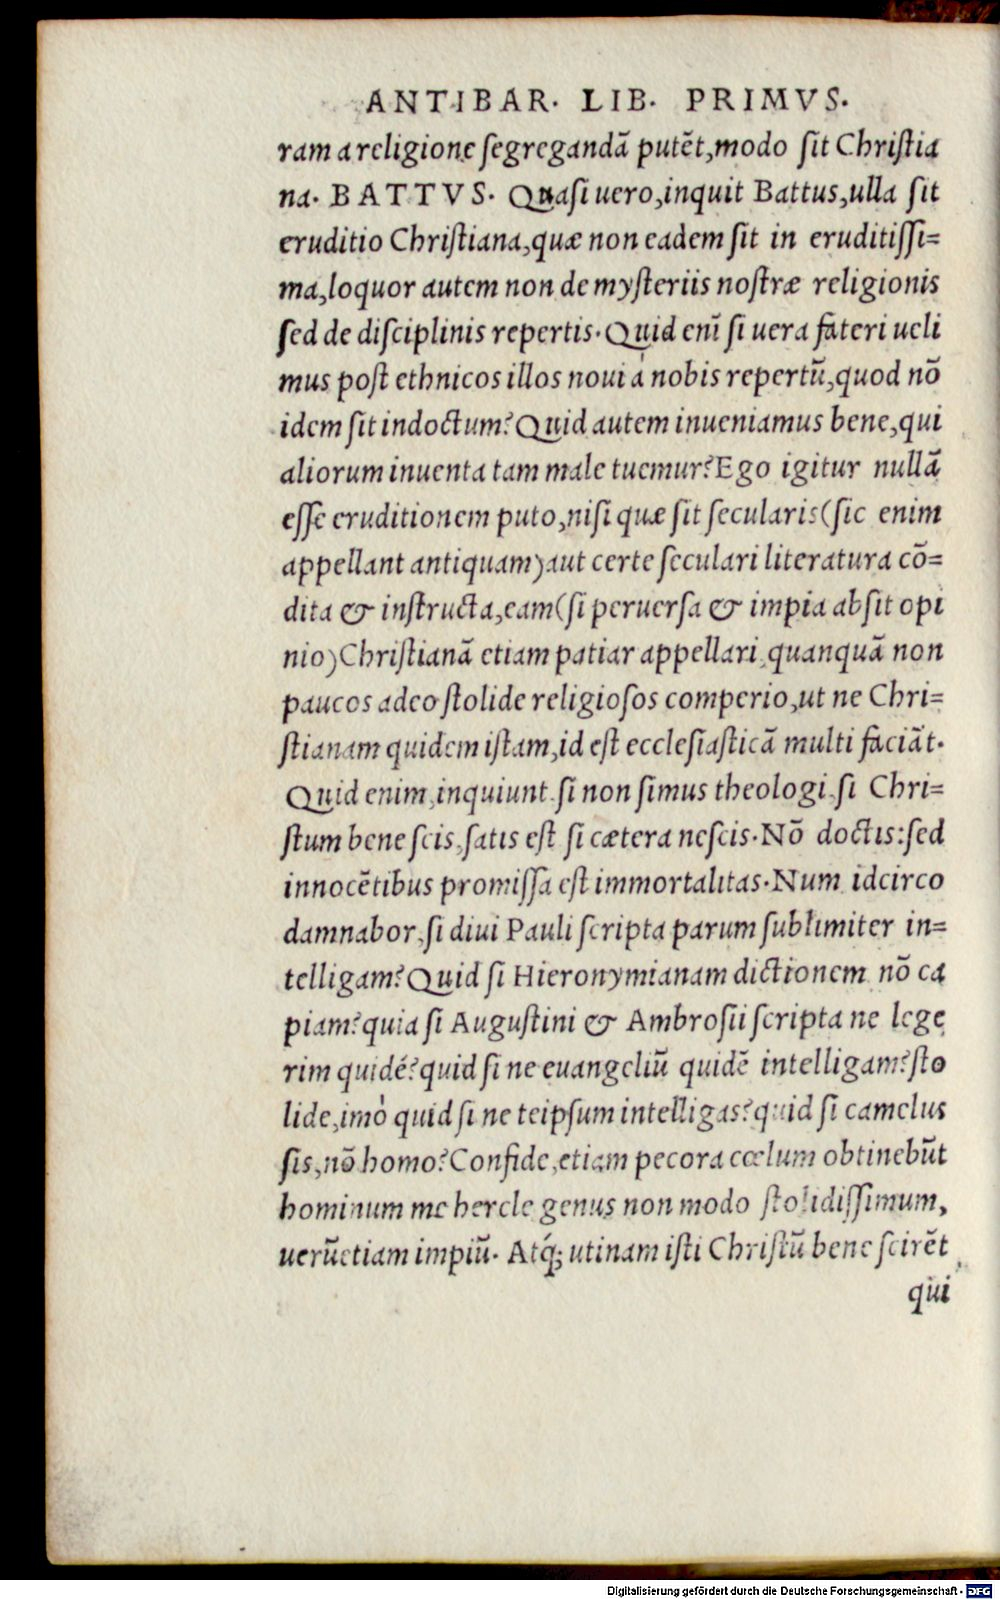 ANTIBAR. LIB. PRIMVS.
ram a religione ſegregandã putēt,modo ſit Chriſtia
na. BATTVS. Quaſi uero,inquit Battus,ulla ſit
eruditio Chriſtiana,quæ non eadem ſit in eruditiſſi=
ma,loquor autem non de myſteriis noſtræ religionis
ſed de diſciplinis repertis. Quid enī ſi uera fateri ueli
mus poſt ethnicos illos noui à nobis repertū,quod nō
idem ſit indoctum? Quid autem inueniamus bene,qui
aliorum inuenta tam male tuemur? Ego igitur nullã
eſſe eruditionem puto,niſi quæ ſit ſecularis(ſic enim
appellant antiquam)aut certe ſeculari literatura cō=
dita & inſtructa,eam(ſi peruerſa & impia abſit opi
nio)Chriſtianã etiam patiar appellari,quanquã non
paucos adeo ſtolide religioſos comperio,ut ne Chri=
ſtianam quidem iſtam,id eſt eccleſiaſticã multi faciãt.
Quid enim,inquiunt,ſi non ſimus theologi,ſi Chri=
ſtum bene ſcis,ſatis eſt ſi cætera neſcis. Nō doctis:ſed
innocētibus promiſſa eſt immortalitas. Num idcirco
damnabor,ſi diui Pauli ſcripta parum ſublimiter in=
telligam? Quid ſi Hieronymianam dictionem nō ca
piam? quia ſi Auguſtini & Ambroſii ſcripta ne lege
rim quidē? quid ſi ne euangeliū quidē intelligam? ſto
lide,imò quid ſi ne teipſum intelligas? quid ſi camelus
ſis,nō homo? Confide,etiam pecora cœlum obtinebūt
hominum me hercle genus non modo ſtolidiſſimum,
uerūetiam impiū. Atq́; utinam iſti Chriſtū bene ſcirēt
qui
Digitalisierung gefördert durch die Deutsche Forschungsgemeinschaft - DFG